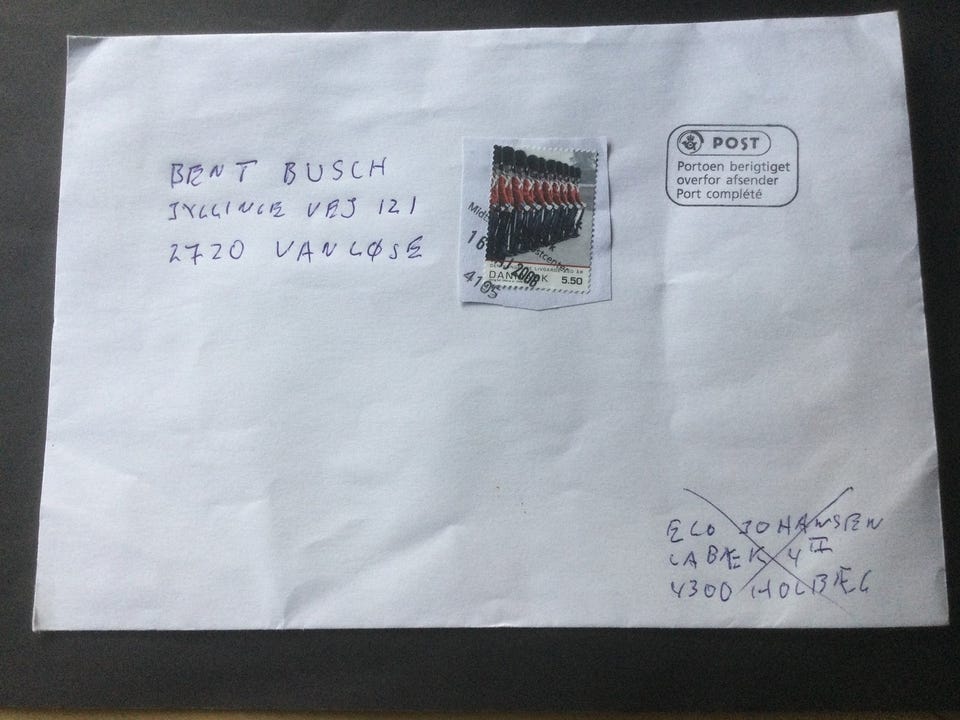 BENT BUSCH
JYLLINGE VEJ 121
2720 VANLØSE
16 2008
4195
LIVGARDE 350 ÅR
DANMARK 5.50
POST
Portoen berigtiget
overfor afsender
Port complété
ELO JOHANSEN
LABÆK 4 II
4300 HOLBÆK